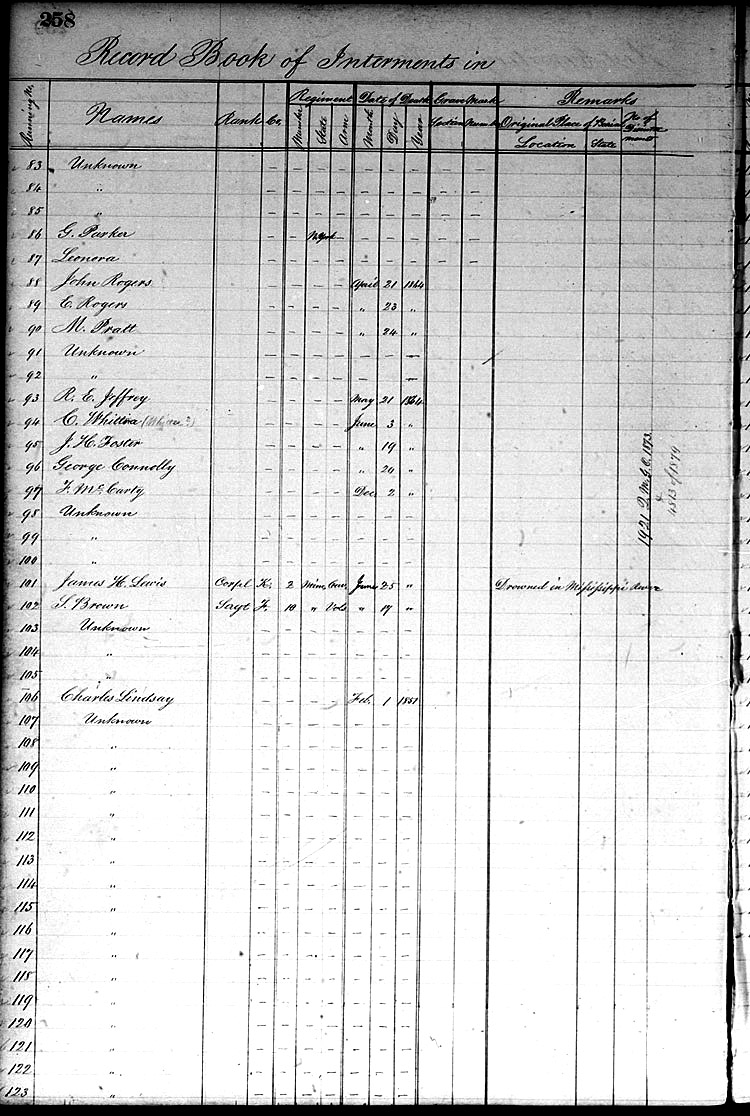 258
Record Book of Interments in
Running No. Names Rank Co. Regiment Date of Death Grave Mark Remarks
Number State Arm Month Day Year Section Original Place of Burial No. of
Location State
83 Unknown — — — — — — — — —
84 " — — — — — — — — —
85 " — — — — — — — — —
86 G. Parker — — N. York — — — — — —
87 Leonora — — — — — — — — —
88 John Rogers — — — — April 21 1864
89 C. Rogers — — — — " 23 "
90 M. Pratt — — — — " 24 "
91 Unknown — — — — — — —
92 " — — — — — — —
93 R. E. Joffrey — — — — May 21 1864
94 C. Whittra — — — — June 3 "
95 J. H. Foster — — — — " 19 "
96 George Connolly — — — — " 20 "
97 F. McCarty — — — — Dec 2 "
98 Unknown — — — — — — —
99 " — — — — — — —
100 " — — — — — — —
101 James H. Lewis Corpl K. 2 Minn Cav. June 25 " Drowned in Mississippi River
102 S. Brown Sargt F. 10 " Vols " 17 "
103 Unknown — — — — — — —
104 " — — — — — — —
105 " — — — — — — —
106 Charles Lindsay — — — — Feb. 1 1851
107 Unknown — — — — — — —
108 " — — — — — — —
109 " — — — — — — —
110 " — — — — — — —
111 " — — — — — — —
112 " — — — — — — —
113 " — — — — — — —
114 " — — — — — — —
115 " — — — — — — —
116 " — — — — — — —
117 " — — — — — — —
118 " — — — — — — —
119 " — — — — — — —
120 " — — — — — — —
121 " — — — — — — —
122 " — — — — — — —
123 " — — — — — — —
1921 Q. M. G. O. 1873.
4813 of 1879